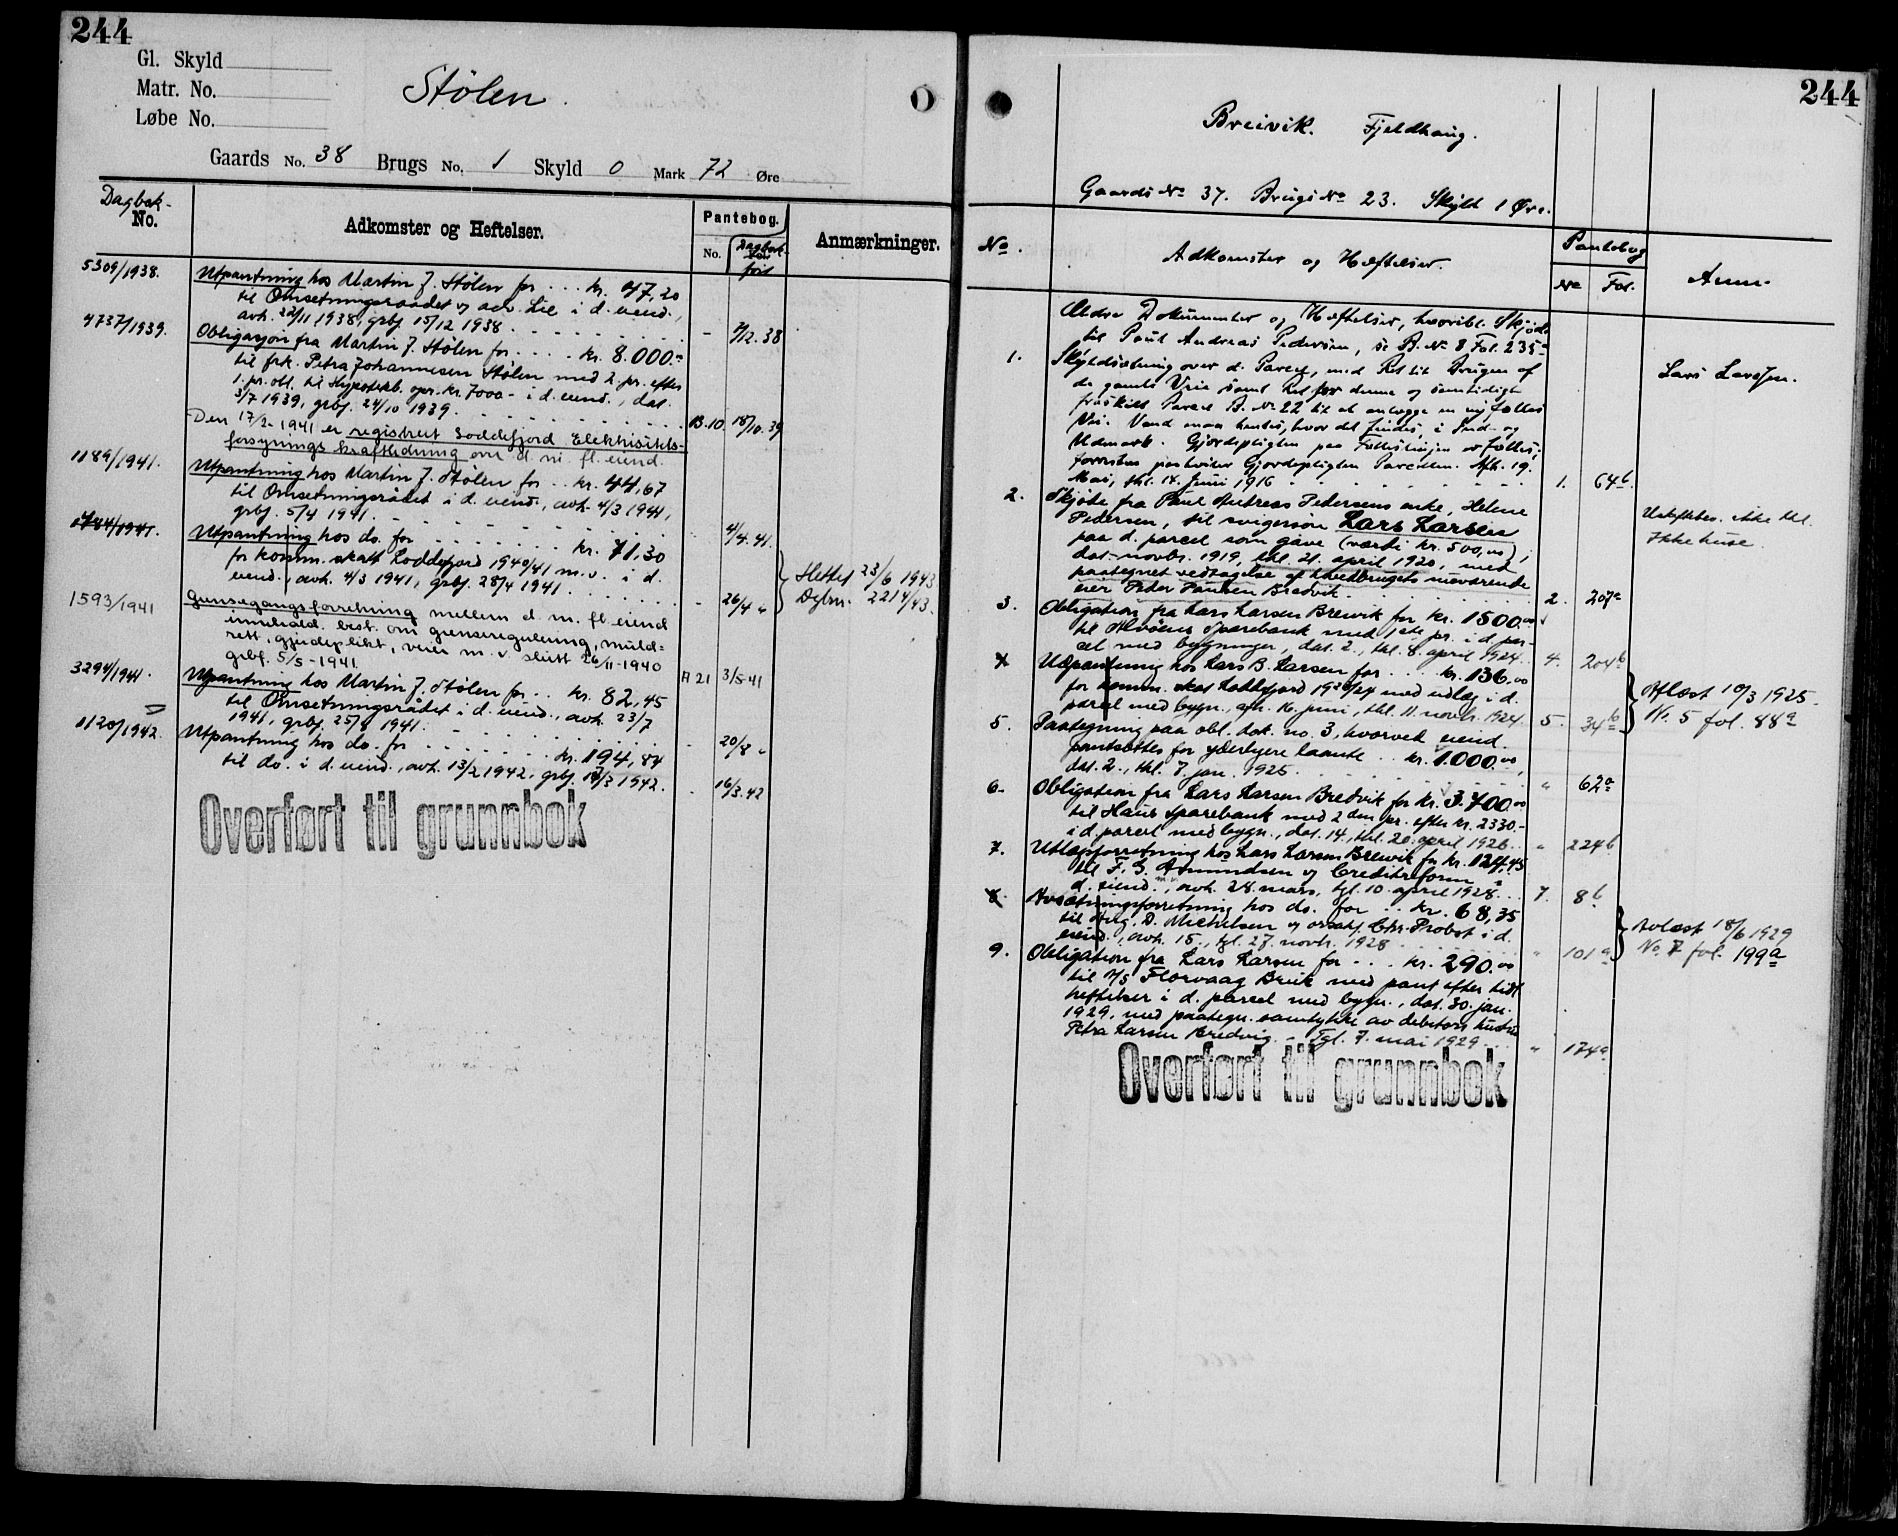 244
Gl. Skyld
Matr. No.
Løbe No.
Stølen.
Gaards No. 38 Brugs No. 1 Skyld 0 Mark 72 Øre
Dagbok-
No.
Adkomster og Heftelser.
Pantebog.
No.
Dagbok-
ført
Anmærkninger.
5309/1938. Utpantning hos Martin J. Stølen for ... kr. 97,20
til Omsetningsraadet v/ adv. Lie i d. eiend.,
avh. 22/11 1938, grbf. 15/12 1938 - 7/12.38
4737/1939. Obligasjon fra Martin J. Stølen for .... kr. 8.000.-
til frk. Petra Johannesen Stølen med 2. pr. efter
1. pr. obl. til Hypotekb. opr. kr. 7000- i d. eiend., dat.
3/7 1939, grbf. 24/10 1939. B.10. 18/10.39
Den 17/2-1941 er registrert Loddefjord Elektrisitets-
forsynings kraftledning over d. m. fl. eiend.
1189/1941. Utpantning hos Martin J. Stølen for .. kr. 44,67
til Omsetningsrådet i d. eiend., avh. 4/3 1941,
grbf. 5/4 1941. - 4/4.41.
1784/1941. Utpantning hos do. for kr. 71.30
for komm. skatt Loddefjord 1940/41 m.v. i d.
eiend., avh. 4/3 1941, grbf. 28/4 1941. - 26/4 "
Slettet 23/6 1943
Dgbnr. 2214/43.
1593/1941 Grensegangsforretning mellem d. m. fl. eiend
innehold. best. om grenseregulering, muld-
rett, gjerdeplikt, veier m.v. slutt 26/11-1940
grbf. 5/5-1941. A 21 3/5-41
3294/1941. Utpantning hos Martin J. Stølen for .. kr. 82,45
til Omsetningsrådet i d. eiend., avh. 23/7
1941, grbf. 25/8 1941. - 20/8 "
1120/1942. Utpantning hos do. for kr. 194,84
til do. i d. eiend., avh. 13/2 1942, grbf. 18/3 1942. - 16/3.42
Overført til grunnbok
244
Breivik. Fjeldhaug.
Gaards No 37. Brugs No 23. Skyld 1 Øre.
No.
Adkomster og Hæftelser.
Pantebog
No Fol.
Anm.
Ældre Dokumenter og Hæftelser, hvoribl. Skjøde
til Paul Andreas Pedersen, se B. No 8 Fol. 235
1. Skyldsætning over d. Parcel, med Ret til Brugen af
de gamle Veie samt Ret for denne og samtidigt
fraskilt Parcel B. No 22 til at anlægge en ny fælles
Vei. Vand maa hentes, hvor det findes, i Ind- og
Udmark. Gjerdepligten paa Fælleslinjen er fælles,
forøvrigt paahviler Gjerdepligten Parcellen. Afh. 19.
Mai, thl. 14. Juni 1916 1. 64b.
Lars Larssen.
2. Skjøte fra Paul Andreas Pedersens enke, Helene
Pedersen, til svigersøn Lars Larsen
paa d. parcel som gave (værdi kr. 500,00),
dat. novbr. 1919, thl. 21. april 1920, med
paategnet vedtagelse af hovedbrugets nuværende
eier Peder Paulsen Bredvik. 2. 207a
Uskiftebev. ikke thl.
Ikke huse.
3. Obligation fra Lars Larsen Breivik for kr. 1500.00
til Alvøens Sparebank med 1ste pr. i d. par-
cel med bygninger, dat. 2., thl. 8. april 1924. 4. 204b
4. Udpantning hos Lars B. Larsen for ... kr. 136.00
for komm. skat Loddefjord 1923/24 med udlæg i d.
parcel med bygn., afh. 16. juni, thl. 11. novbr. 1924. 5. 34b
Aflæst 10/3 1925.
No. 5 fol. 88a
5. Paategning paa obl. dok. no. 3, hvorved eiend.
pantsættes for yderligere laante .. kr. 1.000.00,
dat. 2., thl. 7. jan. 1925. " 62a
6. Obligation fra Lars Larsen Bredvik for kr. 3.700.00
til Haus Sparebank med 2den pr. efter kr. 2330.-
i d. parcel med bygn., dat. 14., thl. 20. april 1926. " 224b
7. Utlægsforretning hos Lars Larsen Breivik for kr. 124,45
til F. G. Amundsen v/ Creditreform i
d. eiend., avh. 28. mars, tgl. 10. april 1928. 7. 8b
8. Avsætningsforretning hos do. for ... kr. 68,35
til Aug. D. Michelsen v/ orsakf. Chr. Probst i d.
eiend., avh. 15., tgl. 27. novbr. 1928 " 101a
Avlæst 18/6 1929
No. 7 fol. 199a
9. Obligation fra Lars Larsen for ... kr. 290.00
til A/S Florvaag Bruk med pant efter tidl.
heftelser i d. parcel med bygn., dat. 30. jan.
1929, med paategn. samtykke av debitors hustru
Petra Larsen Bredvig. - Tgl. 7. mai 1929. " 174a
Overført til grunnbok